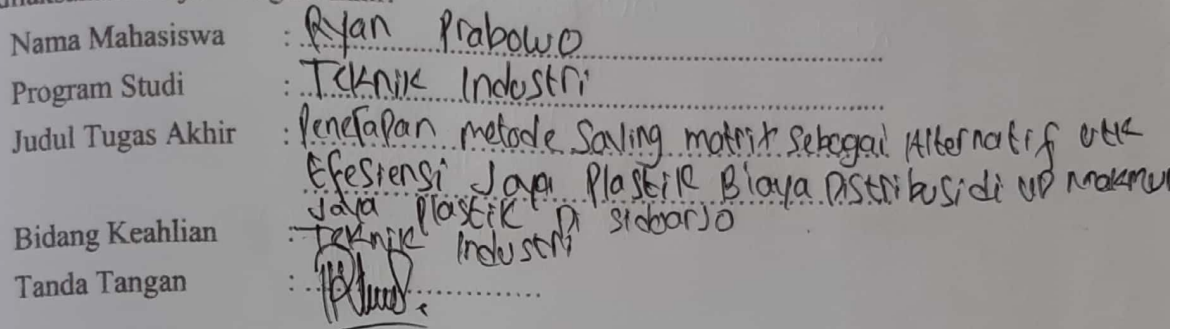 Nama Mahasiswa : Ryan Prabowo
Program Studi : Teknik Industri
Judul Tugas Akhir : Penerapan metode Saving matrix Sebagai Alternatif utk
Efesiensi Jaya Plastik Biaya Distribusi di UD Makmur
Jaya Plastik Di Sidoarjo
Bidang Keahlian : Teknik Industri
Tanda Tangan :